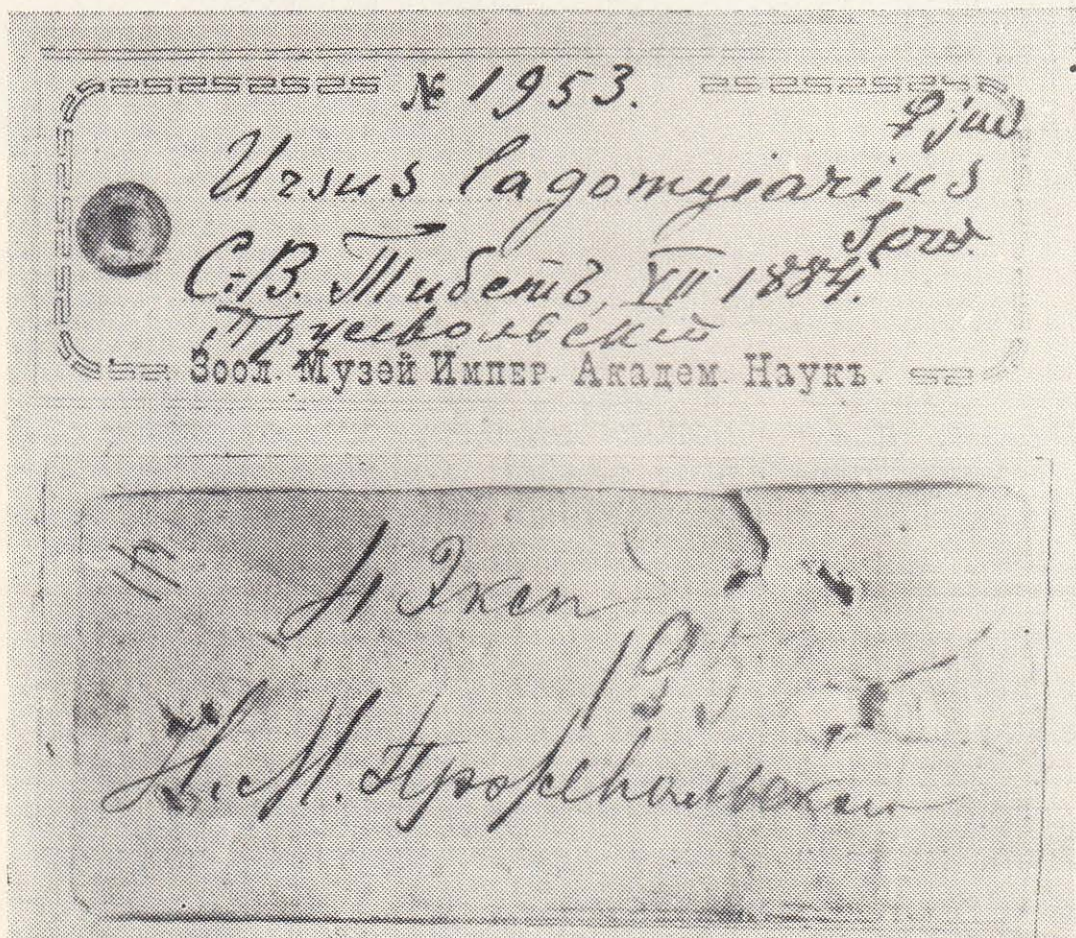 № 1953.
♀ juv
Ursus lagomyiarius
Sew.
С.-В. Тибетъ, VII 1884.
Пржевольский
Зоол. Музей Импер. Академ. Наукъ.
4 Эксп
195
Н. М. Пржевальскаго